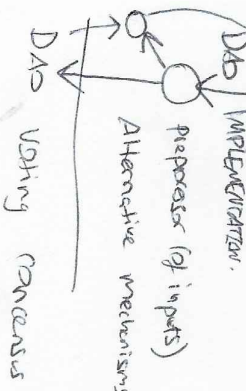 DAO IMPLEMENTATION.
preprocessor (of inputs)
Alternative mechanisms
DAO voting concensus